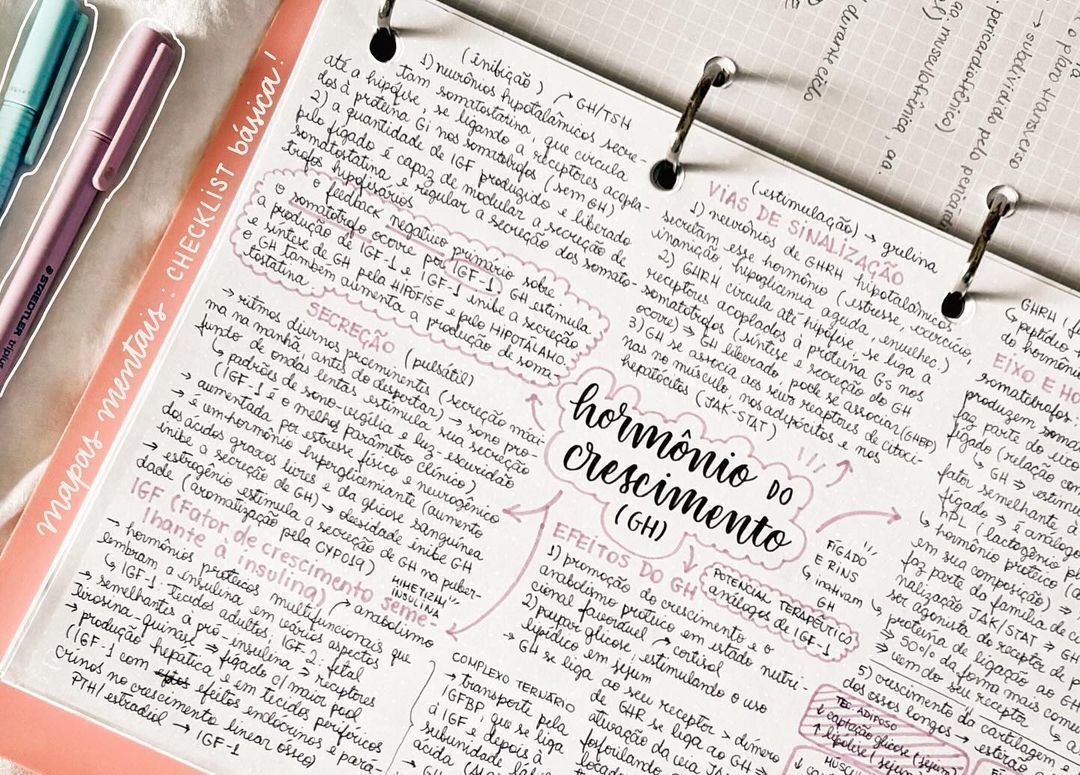 mapas mentais: CHECKLIST básica!
STAEDTLER triplus
(inibição)
1) neurônios hipotalâmicos secre- → GH/TSH
tam somatostatina que circula
até a hipófise, se ligando a receptores acopla-
dos à proteína Gi nos somatotrofos (sem GH)
2) a quantidade de IGF produzido e liberado
pelo fígado é capaz de modular a secreção de
somatostatina e regular a secreção dos somato-
trofos hipofisários
o feedback negativo primário sobre
o somatotrofo ocorre por IGF-1. GH estimula
a produção de IGF-1 e IGF-1 inibe a secreção
e síntese de GH pela HIPÓFISE e pelo HIPOTÁLAMO.
O GH também aumenta a produção de soma-
tostatina.
SECREÇÃO (pulsátil)
→ ritmos diurnos proeminentes (secreção máxi-
ma na manhã, antes do despertar) → sono pro-
fundo de ondas lentas estimula sua secreção
↳ padrões de sono-vigília e luz-escuridão
(IGF-1 é o melhor parâmetro clínico)
→ aumentada por estresse físico e neurogênico
→ é um hormônio hiperglicemiante (aumento
dos ácidos graxos livres e da glicose sanguínea
inibe a secreção de GH) → obesidade inibe GH
→ estrogênio estimula a secreção de GH na puber-
dade (aromatização pelo CYP019)
IGF (Fator de crescimento seme-
lhante à insulina)
MIMETIZAM INSULINA
→ anabolismo
→ hormônios proteicos multifuncionais que
lembram a insulina em vários aspectos
↳ IGF-1: tecidos adultos; IGF-2: fetal
→ semelhantes a pró-insulina → receptores
tirosina-quinase → fígado c/ maior pool
→ produção hepática e em tecidos periféricos
(IGF-1 com efeitos endócrinos e pará-
crinos no crescimento linear ósseo)
PTH/estradiol → IGF-1
VIAS DE SINALIZAÇÃO
(estimulação) → grelina
1) neurônios de GHRH hipotalâmicos
secretam esse hormônio (estresse, exercício,
inanição, hipoglicemia aguda, envelhec.)
2) GHRH circula até hipófise, se liga a
receptores acoplados à proteína Gs nos
somatotrofos (síntese e secreção do GH
ocorre) → GH liberado pode se associar (GHBP)
3) GH se associa aos seus receptores de citoci-
nas no músculo, nos adipócitos e nos
hepatócitos (JAK-STAT)
hormônio DO
crescimento
(GH)
EFEITOS DO GH
1) promoção do crescimento e o
anabolismo proteico em estado nutri-
cional favorável → cortisol
2) poupar glicose, estimulando o uso
lipídico em jejum
→ GH se liga ao seu receptor → dímero
de GHR se liga ao GH →
ativação da via JAK
POTENCIAL TERAPÊUTICO
análogos de IGF-1
COMPLEXO TERNÁRIO
→ transporte pela
IGFBP, que se liga
à IGF, e depois à
subunidade lábil
ácida
FÍGADO
E RINS
↳ inativam
GH
EIXO E HO
↳ peptídeo
do hormôni
somatotrofos
produzem soma
faz parte do eixo
fígado (relação com
↳ GH → estimu
fator semelhante à
fígado → é análogo
hPL (lactogênio pl
↳ hormônio proteico
em sua composição) →
faz parte da família de c
nalização JAK/STAT → GH
ser agonista do receptor de p
↳ proteína de ligação ao G
→ 50% da forma mais comu
→ vem do seu receptor
5) crescimento da cartilagem e
dos ossos longos →
TEC. ADIPOSO
↓ captação glicose (jejum)
↑ lipólise (jejum)
MÚSCUL
o plano transverso
→ subdividido pelo pericárdio
pericardiofrênico)
ao. musculofrênica, aa.